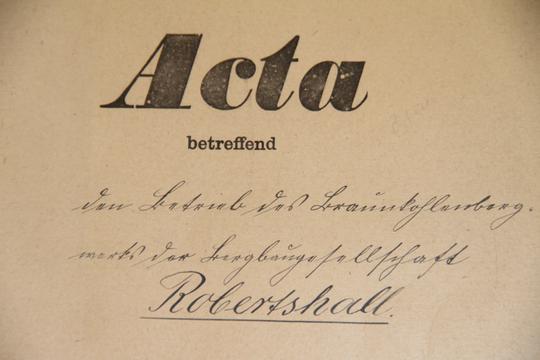 Acta
betreffend
den Betrieb des Braunkohlenberg-
werks der Bergbaugesellschaft
Robertshall.